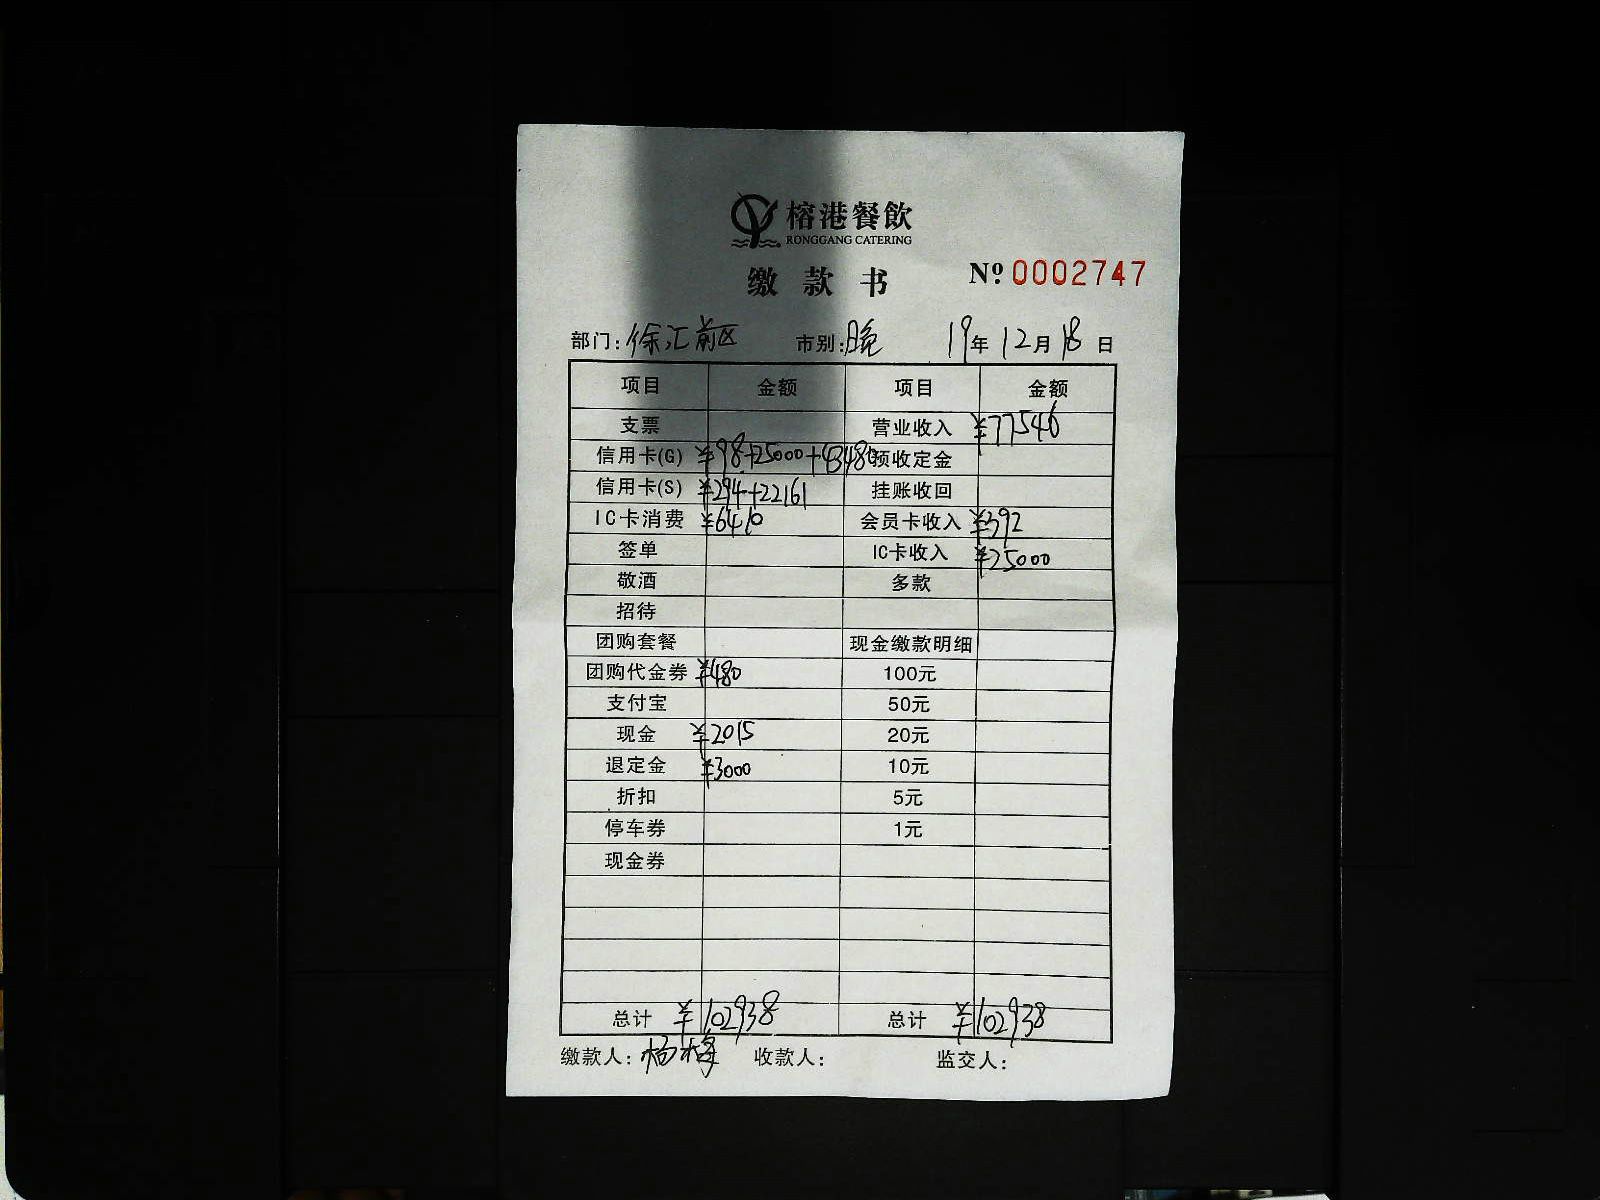 榕港餐飲
RONGGANG CATERING
缴款书 Nº 0002747
部门:徐汇前区 市别:晚 19年12月18日
项目 金额 项目 金额
支票 营业收入 ¥77546
信用卡(G) ¥98+25000+43480 预收定金
信用卡(S) ¥294+22161 挂账收回
IC卡消费 ¥6410 会员卡收入 ¥392
签单 IC卡收入 ¥25000
敬酒 多款
招待
团购套餐 现金缴款明细
团购代金券 ¥480 100元
支付宝 50元
现金 ¥2015 20元
退定金 ¥3000 10元
折扣 5元
停车券 1元
现金券
总计 ¥102938 总计 ¥102938
缴款人:杨梅 收款人: 监交人: